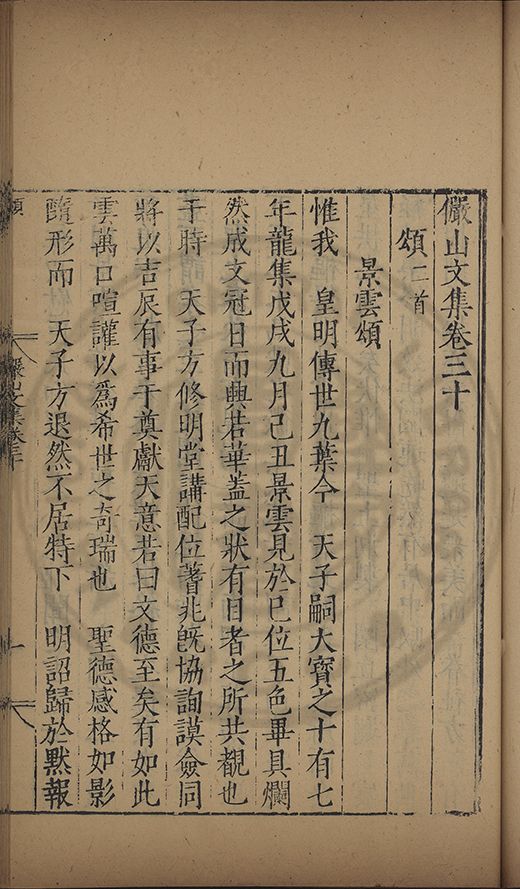 儼山文集卷三十
頌二首
景雲頌
惟我　皇明傳世九葉今　天子嗣大寶之十有七
年龍集戊戌九月己丑景雲見於巳位五色畢具爛
然成文冠日而興若華蓋之狀有目者之所共覩也
于時　天子方修明堂講配位蓍兆旣協詢謨僉同
將以吉辰有事于奠獻天意若曰文德至矣有如此
雲萬口喧讙以爲希世之奇瑞也　聖德感格如影
隨形而　天子方退然不居特下　明詔歸於默報
頌
儼山文集卷三十
一